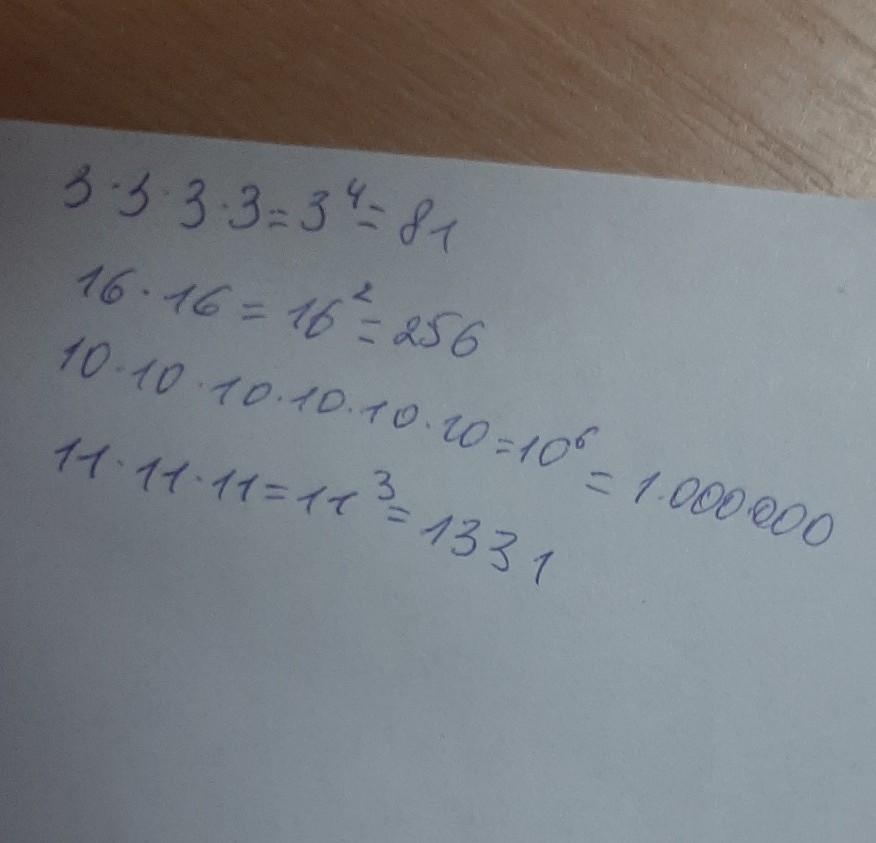 3·3·3·3=3⁴=81
16·16=16²=256
10·10·10·10·10·10=10⁶=1.000.000
11·11·11=11³=1331